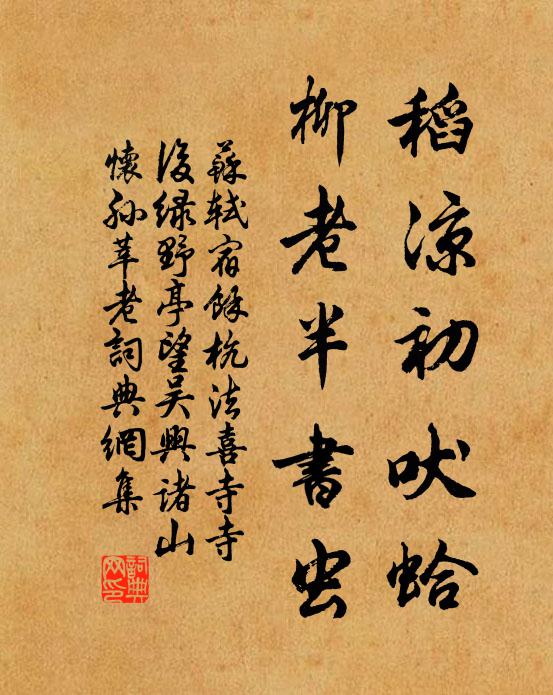 稻凉初吠蛤
柳老半書虫
蘇軾宿餘杭法喜寺寺
後绿野亭望吴興諸山
懷孙莘老詞典網集
詞典网印